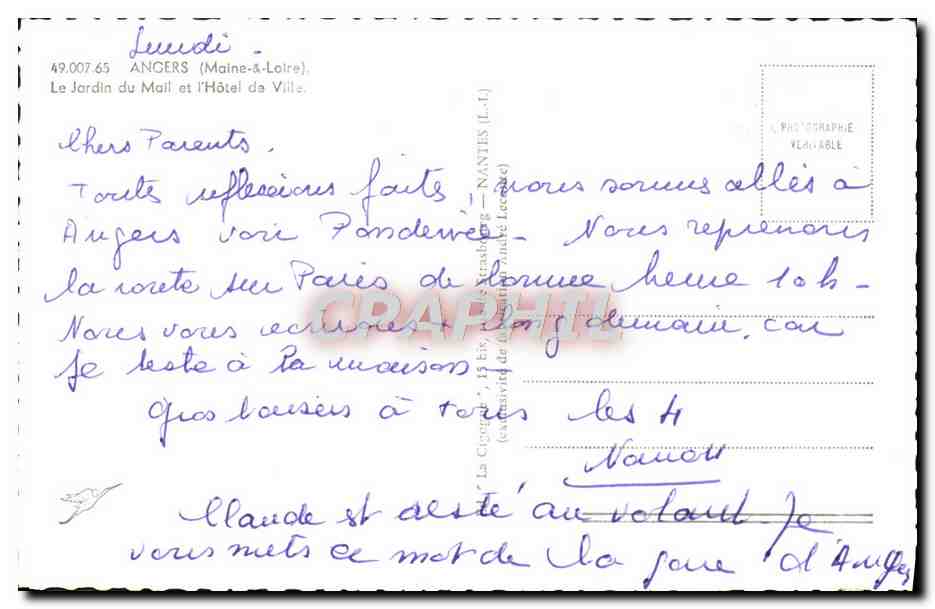 Lundi -
49.007.65 ANGERS (Maine-&-Loire).
Le Jardin du Mail et l'Hôtel de Ville.
Chers Parents.
Toute réflexions faite, nous sommes allés à
Angers voir Nous reprenons
la route sur Paris de bonne heure 10h -
Nous vous + long demain, car
je reste à la maison -
Gros baisers à tous les 4
Nanou
Claude est resté au volant. Je
vous mets ce mot de la gare d'Angers
"La Cigogne", 15 bis, Strasbourg - NANTES (L.-I.)
(exclusivité de André Leconte)
PHOTOGRAPHIE
VÉRITABLE
CRAPHIL